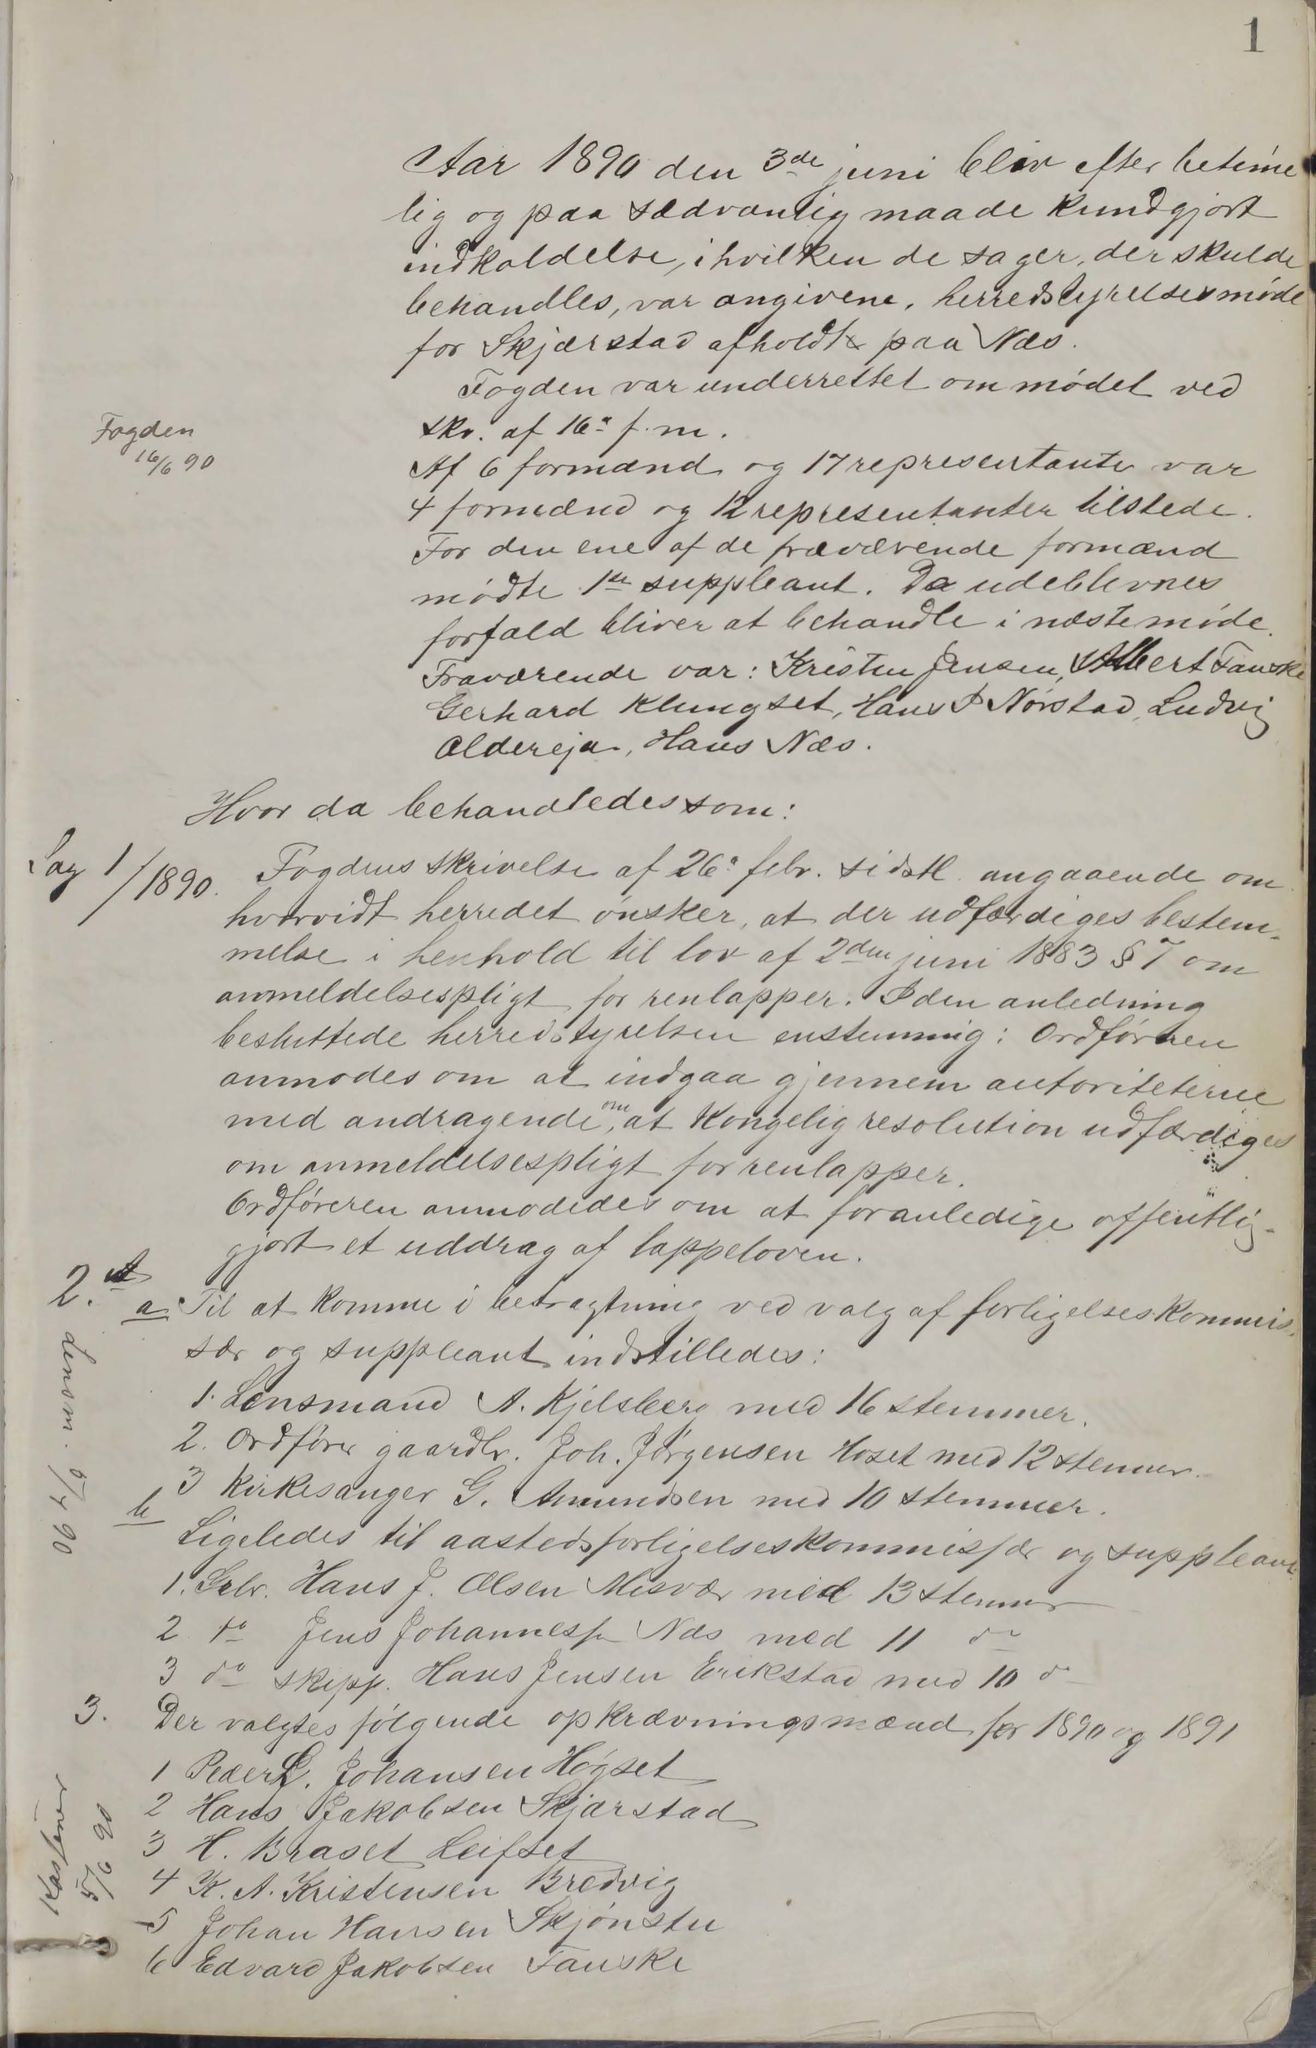 1
Aar 1890 den 3de juni blev efter betime
lig og paa sædvanlig maade kundgjort
indkaldelse, i hvilken de sager, der skulde
behandles, var angivene, herredstyrelsesmøde
for Skjærstad afholdt paa Næs.
Fogden var underrettet om mødet ved
skr. af 16de f.m.
Fogden
16/6 90
Af 6 formænd og 17 representanter var
4 formænd og 12 representanter tilstede.
For den ene af de fraværende formænd
mødte 1ste suppleant. De udeblevnes
forfald bliver at behandle i næste møde.
Fraværende var: Kristen Jensen, Albert Fauske
Gerhard Klungset, Hans P Nørstad, Ludvig
Alder­eja, Hans Næs.
Hvor da behandledes som:
Sag 1/1890.
Fogdens skrivelse af 26de febr. sidstl. angaaende om
hvorvidt herredet ønsker, at der udfærdiges bestem-
melse i henhold til lov af 2den juni 1883 § 7 om
anmeldelsespligt for renlapper. I den anledning
besluttede herredstyrelsen enstemmig: Ordføreren
anmodes om at indgaa gjennem autoriteterne
med andragende om, at Kongelig resolution udfærdiges
om anmeldelsespligt for renlapper.
Ordføreren anmodedes om at foranledige offentlig-
gjort et uddrag af lappeloven.
2.
a Til at komme i betragtning ved valg af forligelseskommis-
sær og suppleant indstilledes:
1. Lensmand A. Kjelsberg med 16 stemmer.
2. Ordfører gaardbr. Joh. Jørgensen Hoset med 12 stemmer.
3 Kirkesanger G. Amundsen med 10 stemmer.
Lensm.
b
Ligeledes til aastedsforligelseskommissær og suppleant
1. Gbr. Hans J. Olsen Misvær med 13 stemmer
2 do Jens Johannesſn Næs med 11 do
3 do skipp. Hans Jensen Erikstad med 10 do
3. Der valgtes følgende opkrævningsmænd for 1890 og 1891
1 Peder L. Johansen Høgset
2 Hans Jakobsen Skjærstad
3 H. Braset Leifset
4 K. A. Kristensen Bredvig
5 Johan Hansen Skjønstu
6 Edvard Jakobsen Fauske
Kasserer
5/6 90